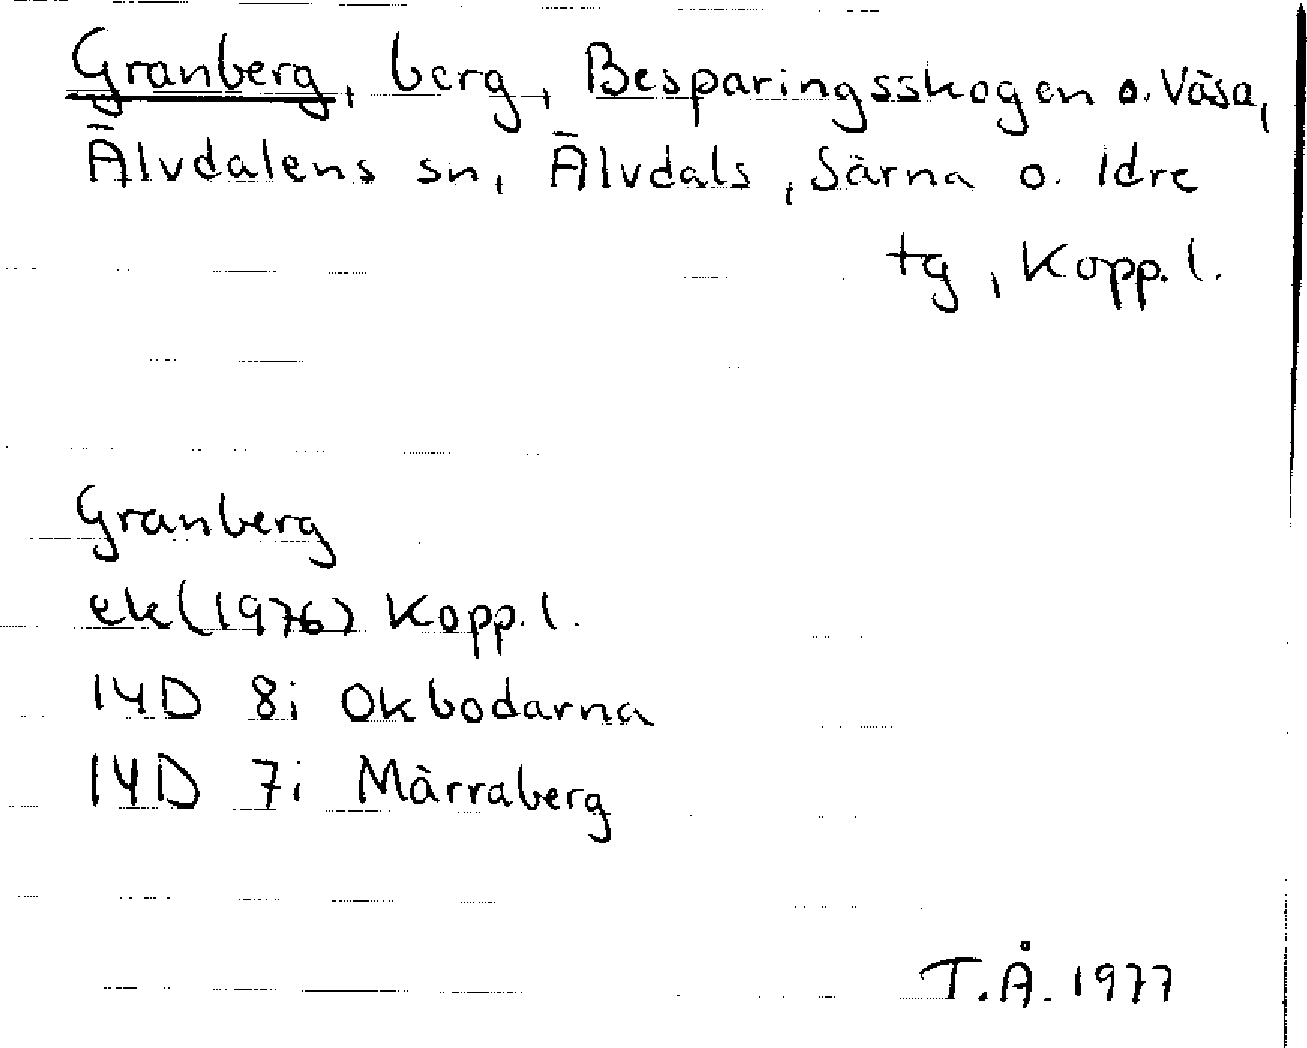 Granberg, berg, Besparingsskogen o. Väsa,
Älvdalens sn, Älvdals, Särna o. Idre
tg, Kopp. l.
Granberg
ek (1976) Kopp. l.
14D 8i Okbodarna
14D 7i Märraberg
T.Å. 1977